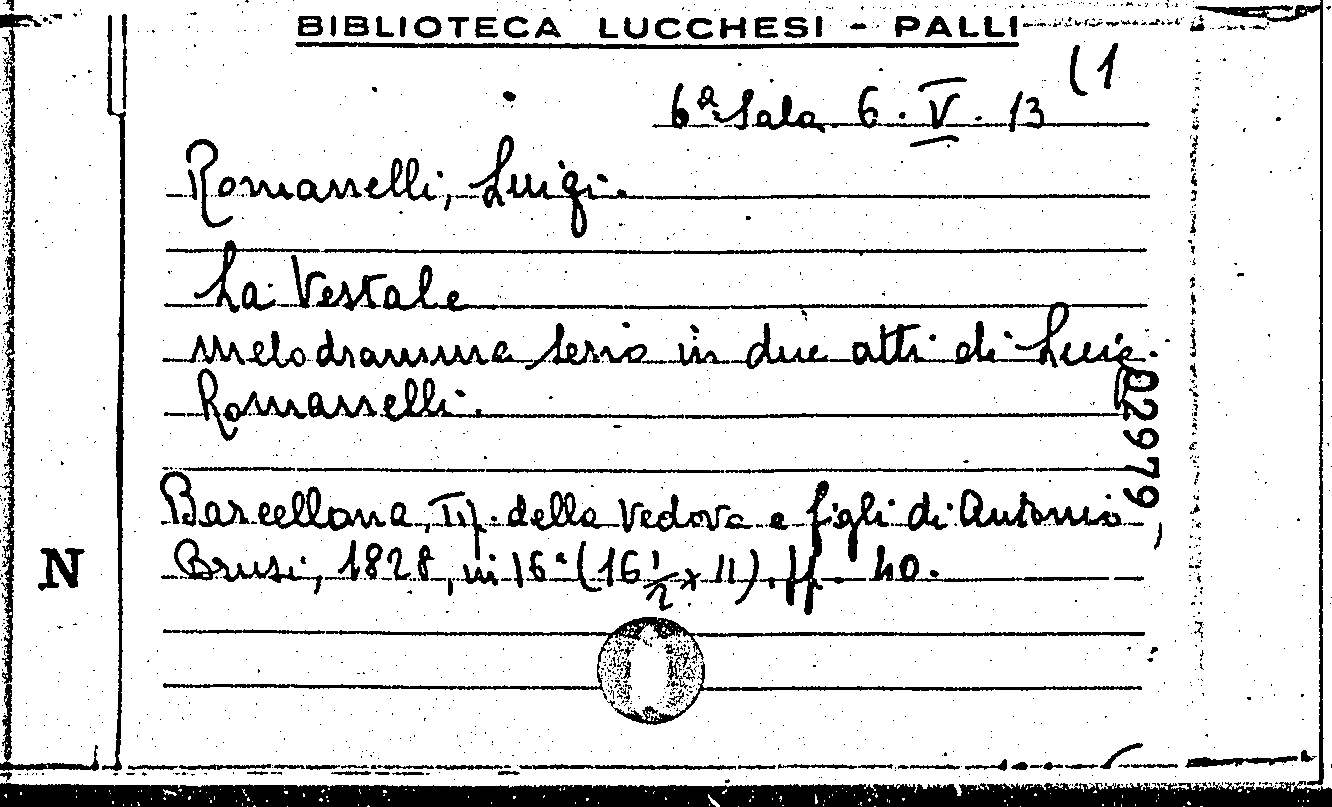 BIBLIOTECA LUCCHESI - PALLI
6ª Sala 6. V. 13 (1
Romanelli, Luigi.
La Vestale
melodramma serio in due atti di Luigi
Romanelli.
02979
Barcellona, Tip. della Vedova e figli di Antonio
Brusi, 1828, in 16° (16 1/2 x 11). pp. 40.
N